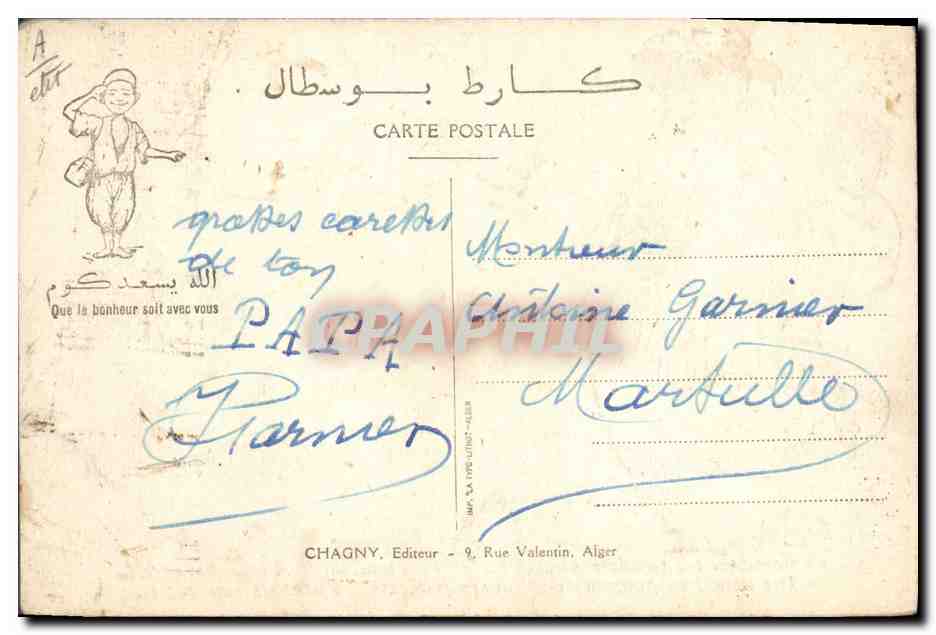 A
كارط بوسطال .
CARTE POSTALE
الله يسعدكوم
Que le bonheur soit avec vous
grosses caresses
de ton
PAPA
Garnier
Monsieur
Antoine Garnier
Marseille
CRAPHIL
IMP. "LA TYPO-LITHO" - ALGER
CHAGNY, Editeur - 9, Rue Valentin, Alger